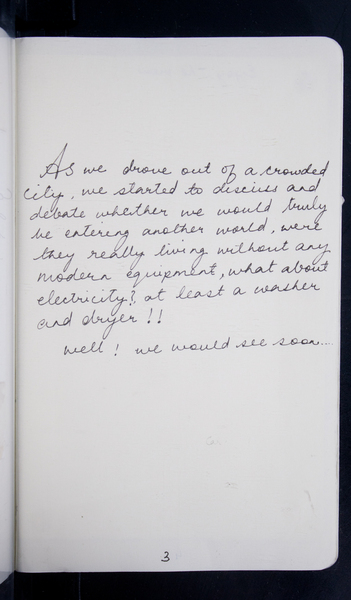 As we drove out of a crowded
city, we started to discuss and
debate whether we would truly
be entering another world, were
they really living without any
modern equipment, what about
electricity?, at least a washer
and dryer !!
well ! we would see soon...
3